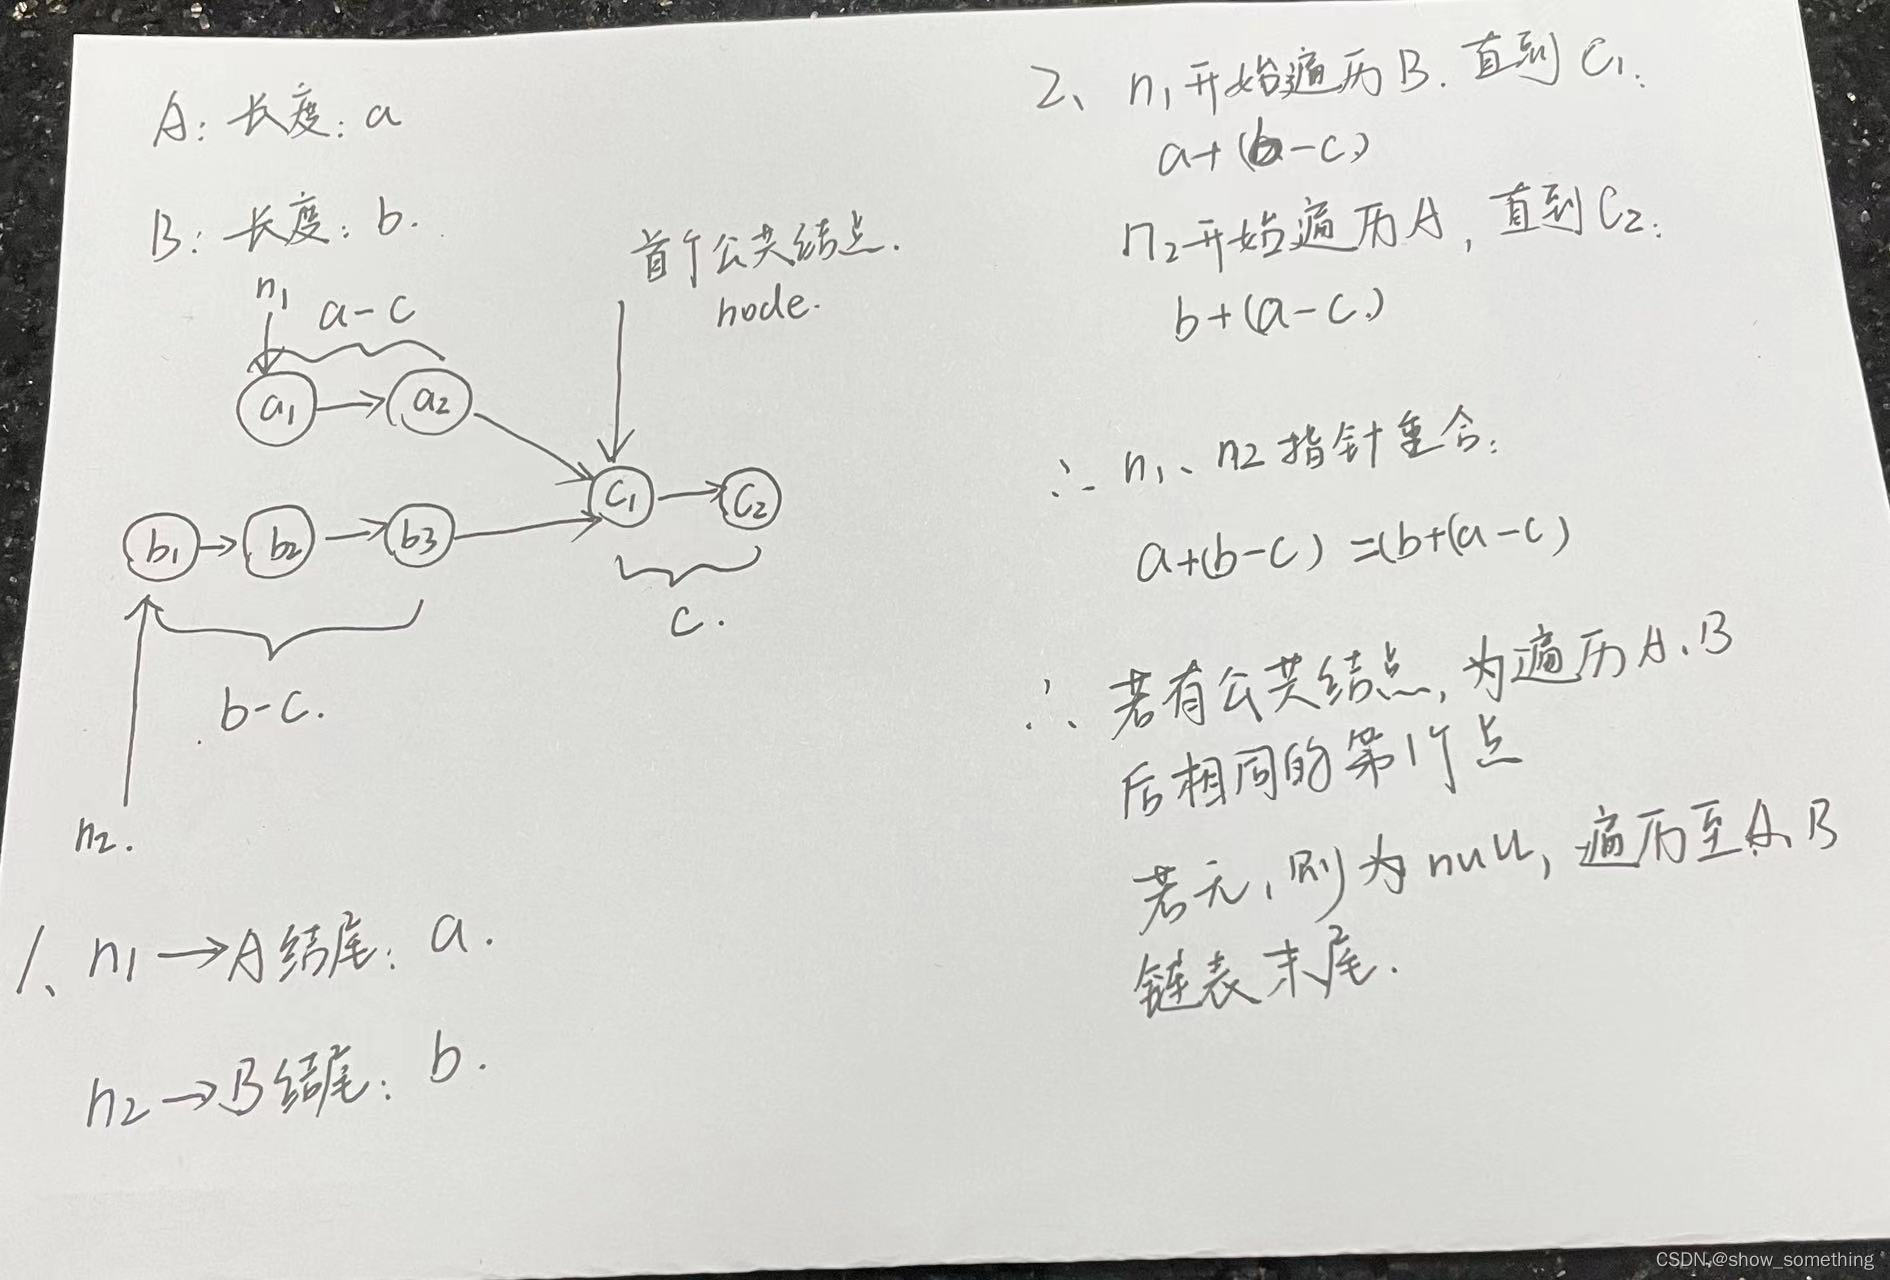 A: 长度: a
B: 长度: b.
n1
a-c
首个公共结点.
node.
a1
a2
c1
c2
b1
b2
b3
c.
b-c.
n2.
1、n1→A结尾: a.
n2→B结尾: b.
2、n1开始遍历B. 直到C1:
a+(b-c)
n2开始遍历A, 直到C2:
b+(a-c)
∴ n1、n2指针重合:
a+(b-c)=(b+(a-c)
∴ 若有公共结点, 为遍历A、B
后相同的第1个点
若无, 则为null, 遍历至A、B
链表末尾.
CSDN @show_something